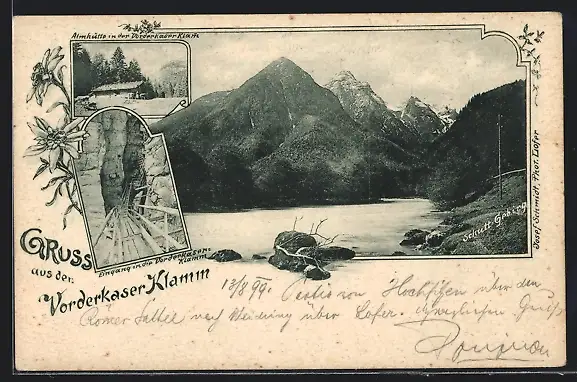 Almhütte in der Vorderkaser Klam
Eingang in die Vorderkaser-
Klamm
Gruss
aus der
Vorderkaser Klamm
Schütt. Gebirg
Josef Schmidt, Phot. Lofer
13/8 99. Partie von Hochfilzen über den
Römer Sattel nach Weidring über Lofer. Herzlichen Gruß